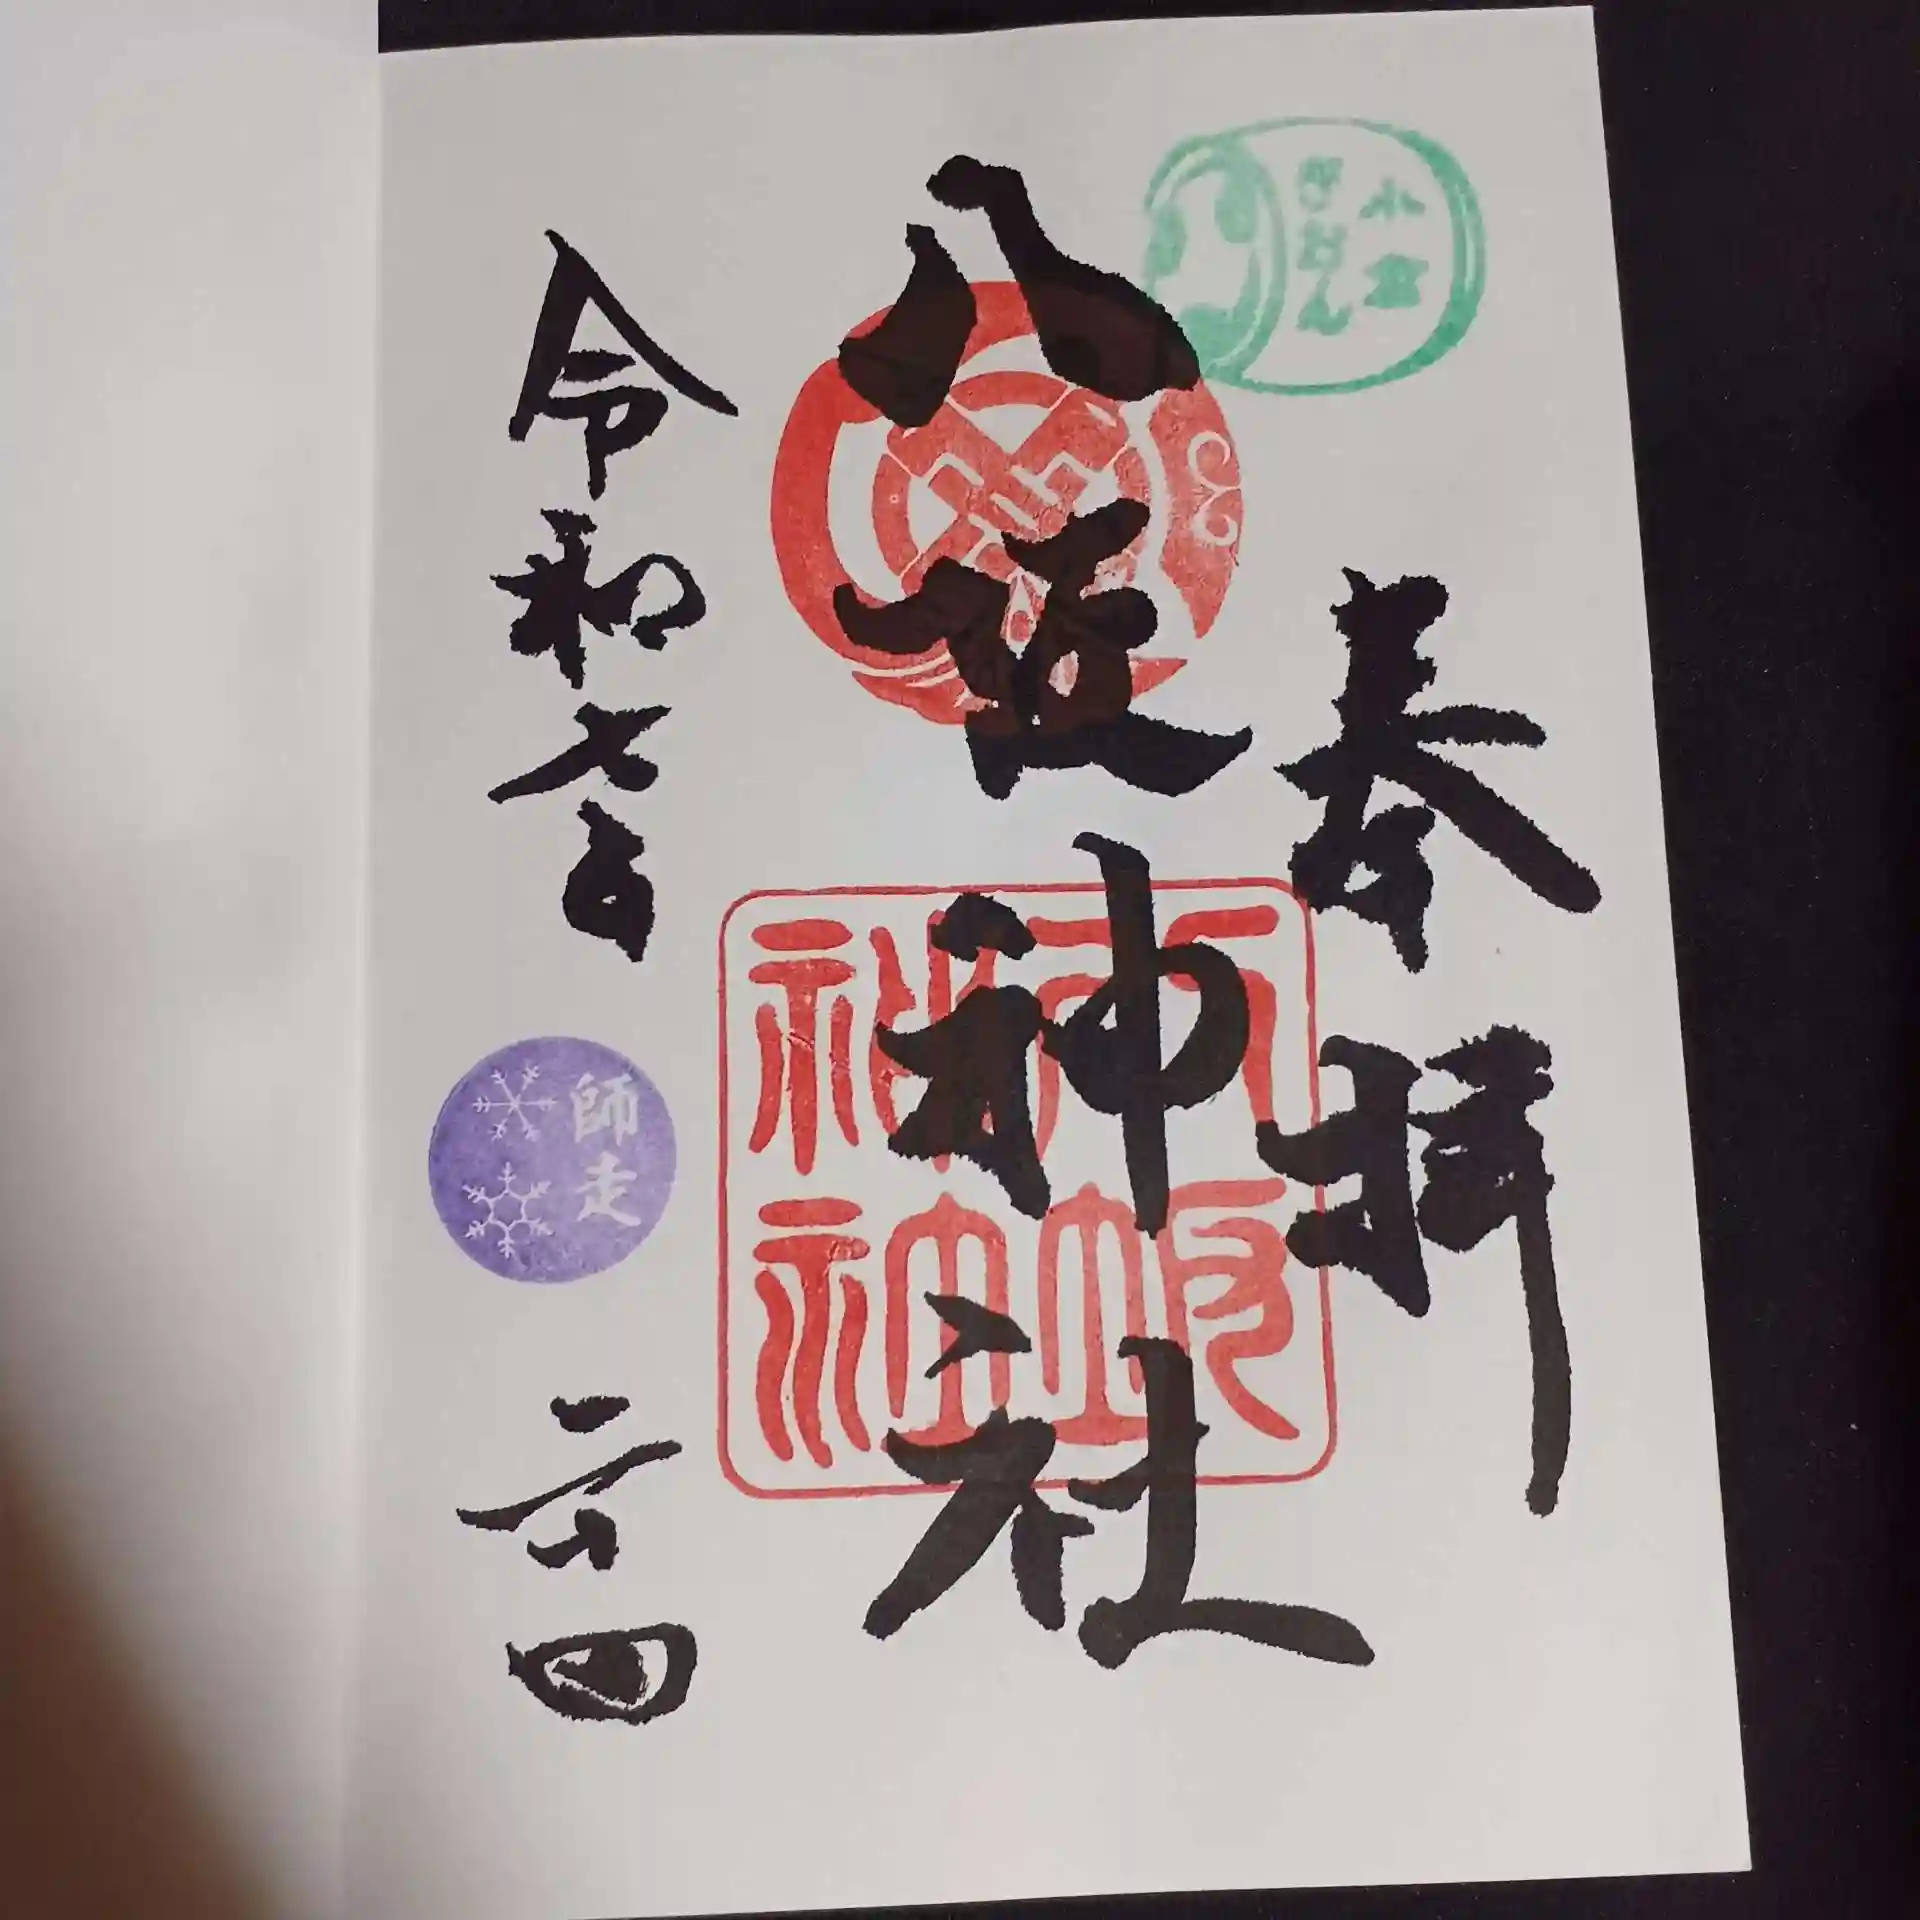 小倉
ぎおん
奉拝
八坂神社
八坂
神社
令和七年
師走
二十四